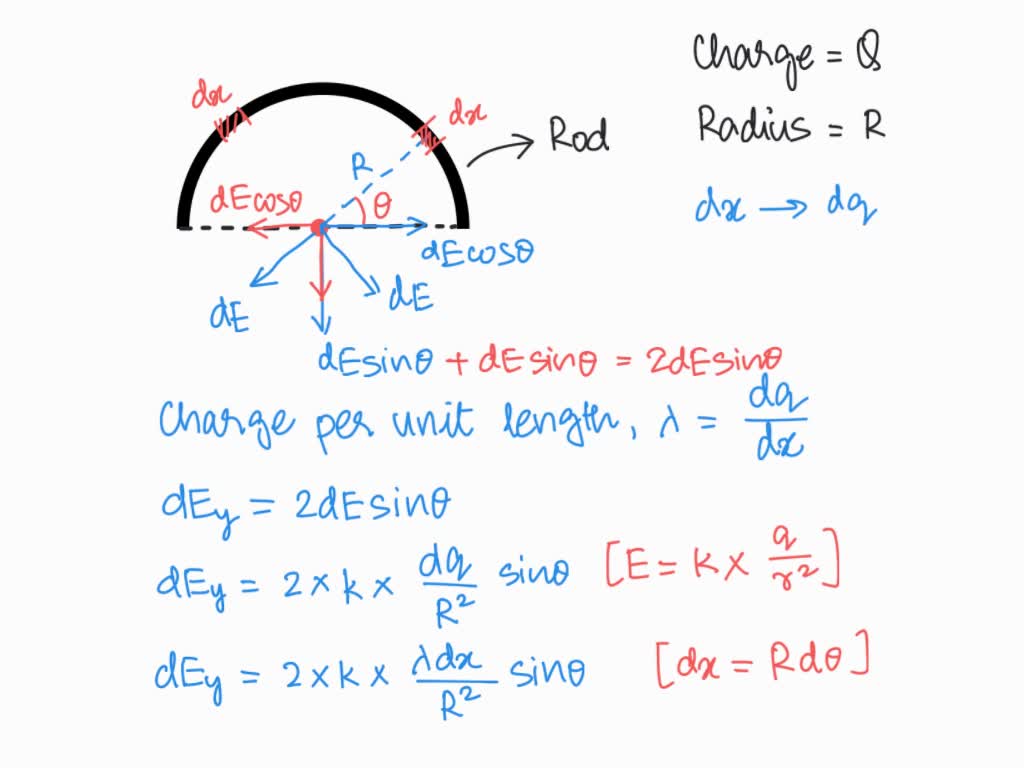 Charge = Q
dx
dx
Rod
Radius = R
R
dEcosθ
θ
dx → dq
dEcosθ
dE
dE
dEsinθ + dEsinθ = 2dEsinθ
Charge per unit length, λ = dq/dx
dEy = 2dEsinθ
dEy = 2 × k × dq/R² sinθ [E = k × q/r²]
dEy = 2 × k × λdx/R² sinθ [dx = Rdθ]